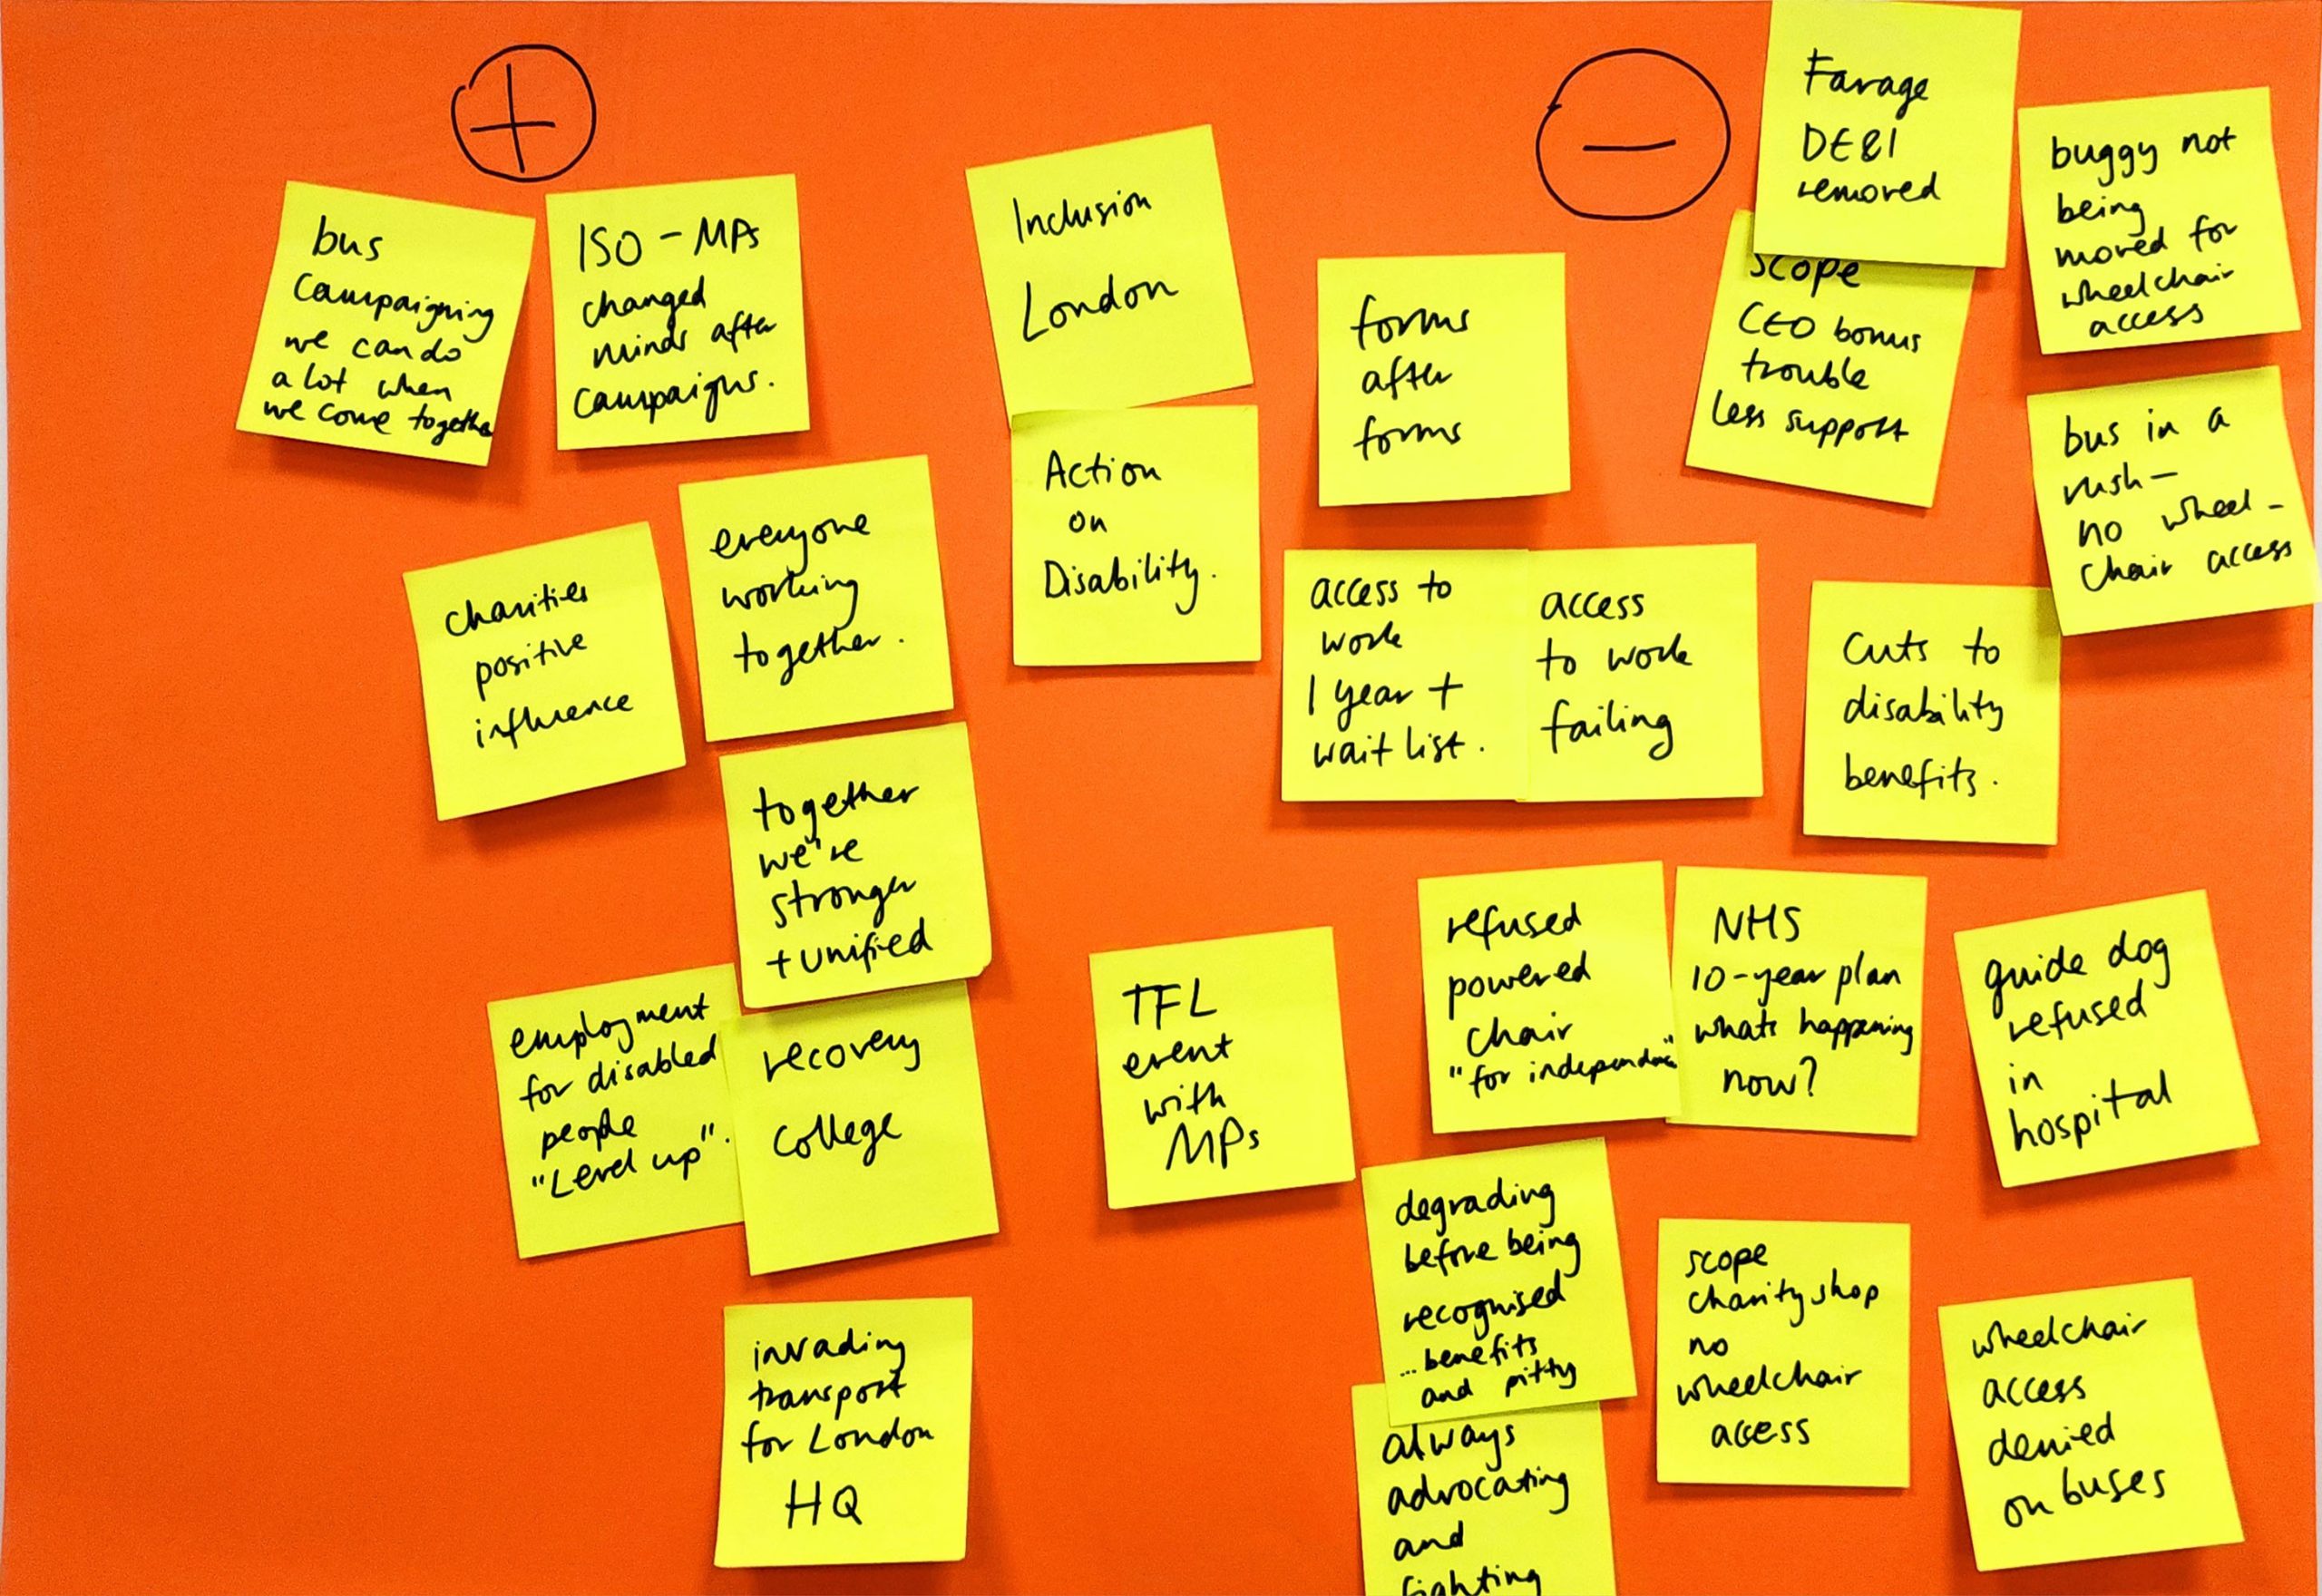 +
bus
campaigning
we can do
a lot when
we come together
ISO - MPs
changed
minds after
campaigns.
charities
positive
influence
everyone
working
together.
together
we're
stronger
+ unified
employment
for disabled
people
"Level up".
recovery
college
invading
transport
for London
HQ
Inclusion
London
Action
on
Disability.
TFL
event
with
MPs
−
Farage
DE&I
removed
scope
CEO bonus
trouble
less support
buggy not
being
moved for
wheelchair
access
bus in a
rush -
no wheel -
chair access
forms
after
forms
access to
work
1 year +
wait list.
access
to work
failing
cuts to
disability
benefits.
refused
powered
chair
"for independence"
NHS
10-year plan
whats happening
now?
guide dog
refused
in
hospital
degrading
before being
recognised
... benefits
and pitty
always
advocating
and
fighting
scope
charity shop
no
wheelchair
access
wheelchair
access
denied
on buses